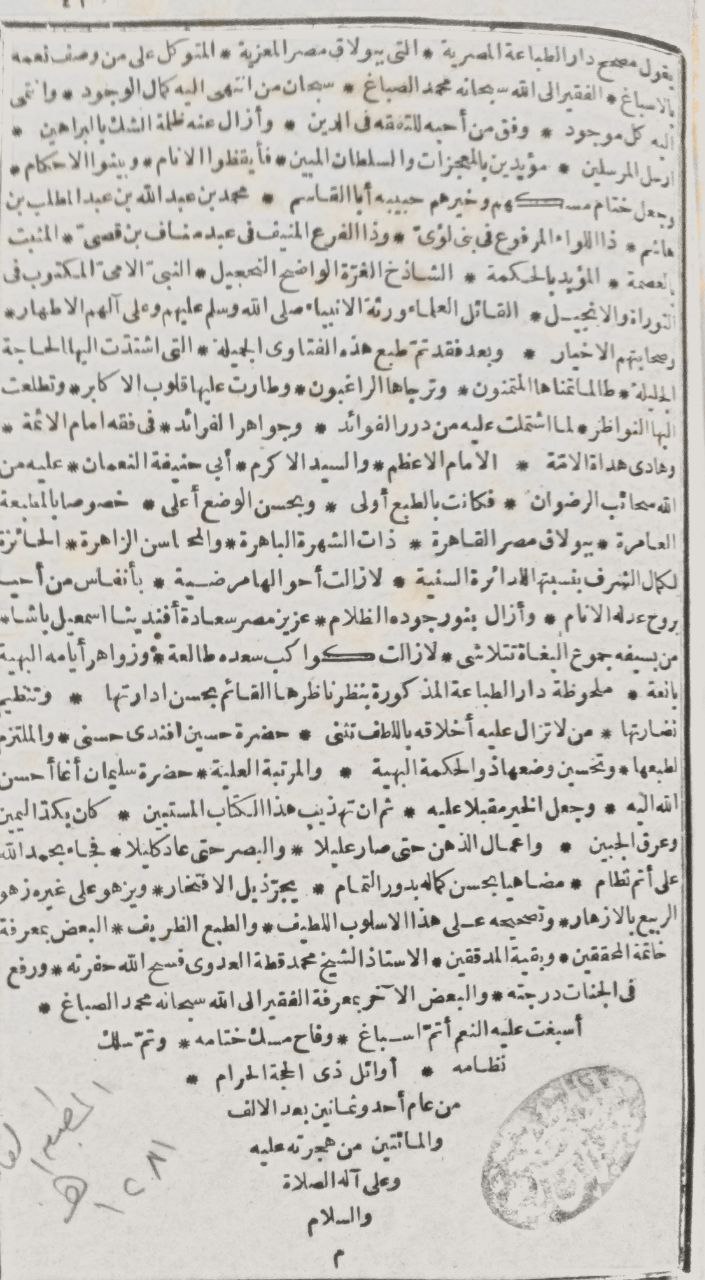 يقول مصحح دار الطباعة المصرية * التى ببولاق مصر المعزية * المتوكل على من وصف نعمه
بالاسباغ * الفقير الى الله سبحانه محمد الصباغ * سبحان من انتهى اليه كمال الوجود * وانتمى
اليه كل موجود * وفق من أحبه للتفقه فى الدين * وأزال عنه ظلمة الشك بالبراهين *
ارسل المرسلين * مؤيدين بالمعجزات والسلطان المبين * فأيقظوا الانام * وبينوا الاحكام *
وجعل ختام مسكهم وخيرهم حبيبه أبا القاسم * محمد بن عبد الله بن عبد المطلب بن
هاشم * ذا اللواء المرفوع فى بنى لؤىّ * وذا الفرع المنيف فى عبد مناف بن قصىّ * المثبت
بالعصمة * المؤيد بالحكمة * الشادخ الغرّة الواضح التحجيل * النبىّ الامىّ المكتوب فى
التوراة والانجيل * القائل العلماء ورثة الانبياء صلى الله وسلم عليهم وعلى آلهم الاطهار *
وصحابتهم الاخيار * وبعد فقد تمّ طبع هذه الفتاوى الجميلة * التى اشتدّت اليها الحاجة
الجليلة * طالما تمناها المتمنون * وترجاها الراغبون * وطارت عليها قلوب الاكابر * وتطلعت
اليها النواظر * لما اشتملت عليه من درر الفوائد * وجواهر الفرائد * فى فقه امام الائمة *
وهادى هداة الامّة * الامام الاعظم * والسيد الاكرم * أبى حنيفة النعمان * عليه من
الله سحائب الرضوان * فكانت بالطبع أولى * وبحسن الوضع أعلى * خصوصا بالمطبعة
العامرة * ببولاق مصر القاهرة * ذات الشهرة الباهرة * والمحاسن الزاهرة * الحائزة
لكمال الشرف بنسبتها للدائرة السنية * لازالت أحوالها مرضية * بأنفاس من أحيا
بروح عدله الانام * وأزال بنور جوده الظلام * عزيز مصر سعادة أفندينا اسمعيل باشا *
من بسيفه جموع البغاة تتلاشى * لازالت كواكب سعده طالعة * وزواهر أيامه البهية
يانعة * ملحوظة دار الطباعة المذكورة بنظر ناظرها القائم بحسن ادارتها * وتنظيم
نضارتها * من لا تزال عليه أخلاقه باللطف تثنى * حضرة حسين افندى حسنى * والملتزم
لطبعها * وتحسين وضعها ذو الحكمة البهية * والمرتبة العلية * حضرة سليمان أغا أحسن
الله اليه * وجعل الخير مقبلا عليه * ثم ان تهذيب هذا الكتاب المستبين * كان بكدّ اليمين
وعرق الجبين * واعمال الذهن حتى صار عليلا * والبصر حتى عاد كليلا * فجاء بحمد الله
على أتم نظام * مضاهيا بحسن كماله بدور التمام * يجرّ ذيل الافتخار * ويزهو على غيره زهو
الربيع بالازهار * وتصحيحه على هذا الاسلوب اللطيف * والطبع الظريف * البعض بمعرفة
خاتمة المحققين * وبقية المدققين * الاستاذ الشيخ محمد قطة العدوى فسح الله حفرته * ورفع
فى الجنات درجته * والبعض الآخر بمعرفة الفقير الى الله سبحانه محمد الصباغ *
أسبغت عليه النعم أتمّ اسباغ * وفاح مسك ختامه * وتمّ سلك
نظامه * أوائل ذى الحجة الحرام *
من عام أحد وثمانين بعد الالف
والمائتين من هجرته عليه
وعلى آله الصلاة
والسلام
م
١٢٨١